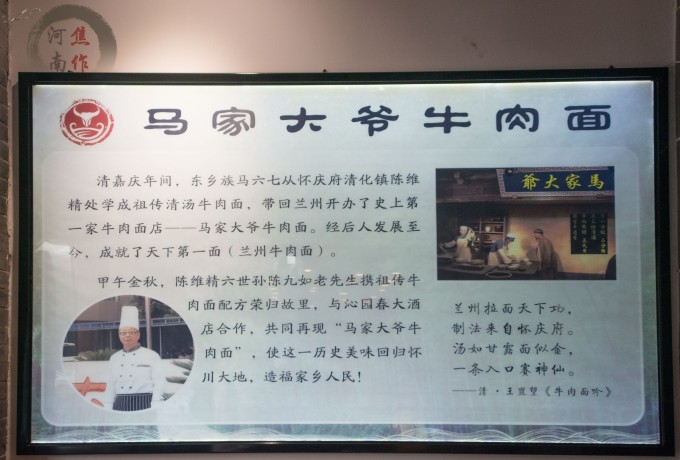 河南
焦作
马家大爷牛肉面
清嘉庆年间，东乡族马六七从怀庆府清化镇陈维
精处学成祖传清汤牛肉面，带回兰州开办了史上第
一家牛肉面店——马家大爷牛肉面。经后人发展至
今，成就了天下第一面（兰州牛肉面）。
甲午金秋，陈维精六世孙陈九如老先生携祖传牛
肉面配方荣归故里，与沁园春大酒
店合作，共同再现“马家大爷牛
肉面”，使这一历史美味回归怀
川大地，造福家乡人民！
爺大家馬
兰州拉面天下功，
制法来自怀庆府。
汤如甘露面似金，
一条入口赛神仙。
——清·王亶望《牛肉面吟》